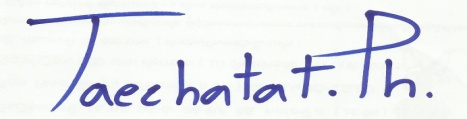 Taechatat. Ph.